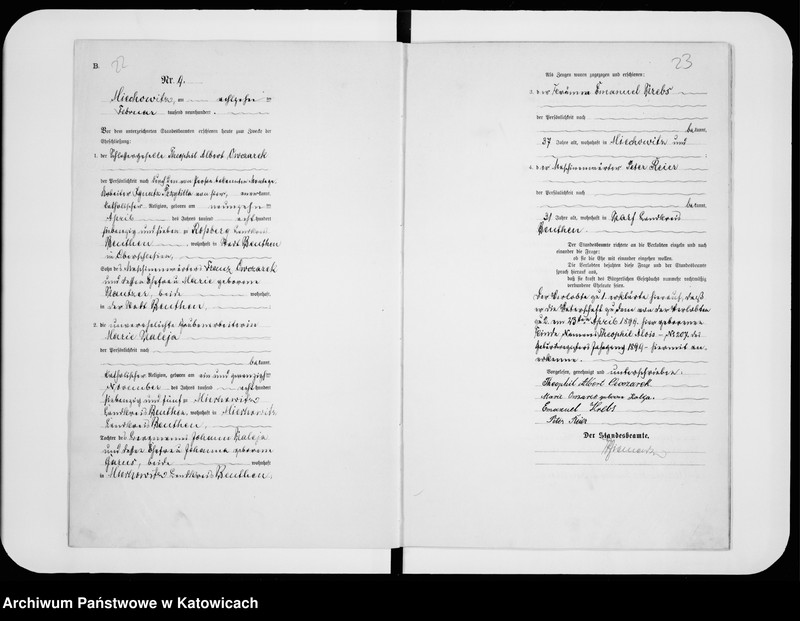 B.
22
Nr. 9.
Miechowitz, am achtzehn ten
Februar tausend neunhundert
Vor dem unterzeichneten Standesbeamten erschienen heute zum Zwecke der
Eheschließung:
1. der Schlossergeselle Theophil Albert Owczarek
der Persönlichkeit nach
katholischer Religion, geboren am neunzehn ten
April des Jahres tausend acht hundert
siebenzig und sieben zu Roßberg Landkreis
Beuthen, wohnhaft in Stadt Beuthen
in Oberschlesien,
Sohn des Maschinenwärters Franz Owczarek
und dessen Ehefrau Marie geborene
beide wohnhaft
in der Stadt Beuthen.
2. die unverehelichte Grubenarbeiterin
Marie Kaleja
der Persönlichkeit nach
be kannt,
katholischer Religion, geboren am ein und zwanzigsten
November des Jahres tausend acht hundert
siebenzig und fünf zu Miechowitz
Landkreis Beuthen, wohnhaft in Miechowitz
Landkreis Beuthen,
Tochter des Bergmanns Johann Kaleja
und dessen Ehefrau Johanna geborene
beide wohnhaft
in Miechowitz Landkreis Beuthen.
23
Als Zeugen waren zugezogen und erschienen:
3. der Emanuel Krebs
der Persönlichkeit nach
be kannt,
37 Jahre alt, wohnhaft in Miechowitz und
4. der Maschinenwärter Peter
der Persönlichkeit nach
be kannt,
31 Jahre alt, wohnhaft in Karf Landkreis
Beuthen.
Der Standesbeamte richtete an die Verlobten einzeln und nach
einander die Frage:
ob sie die Ehe mit einander eingehen wollen.
Die Verlobten bejahten diese Frage und der Standesbeamte
sprach hierauf aus,
daß sie kraft des Bürgerlichen Gesetzbuchs nunmehr rechtmäßig
verbundene Eheleute seien.
Der Verlobte zu 1. erklärte hierauf, daß
er die Vaterschaft zu dem von der Verlobten
zu 2. am 23ten April 1899 hier geborenen
Kinde Namens Theophil Alois – No 207 des
Geburtsregisters Jahrgang 1899 – hiermit an-
erkenne.
Vorgelesen, genehmigt und unterschrieben.
Theophil Albert Owczarek
Marie Owczarek geborene Kaleja.
Emanuel Krebs
Peter
Der Standesbeamte.
Archiwum Państwowe w Katowicach